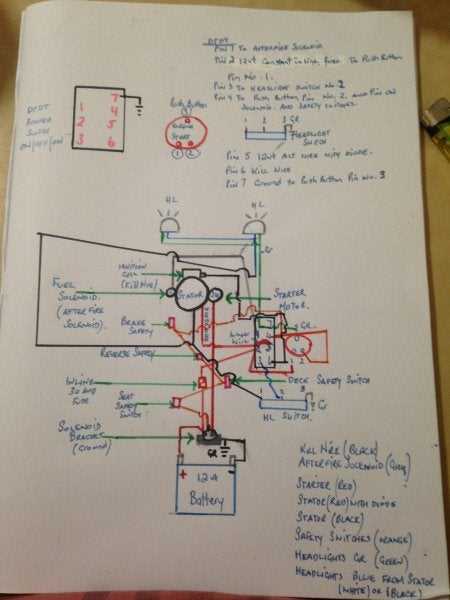 DPDT
Pin 1 To Afterfire Solenoid
Pin 2 12volt Constant
To Push Button
Pin No. 1.
Pin 3 To Headlight Switch No 2
Pin 4 To Push Button Pin No. 2, and Pin on
Solenoid and Safety Switches.
1 2 3 GR
Headlight
Switch
Pin 5 12volt Alt wire with diode.
Pin 6 Kill Wire
Pin 7 Ground to Push Button Pin No. 3
DPDT
Rocker
Switch
ON/OFF/ON
7
1 4
2 5
3 6
Push Button
3
Engine
Start
1 2
HL
HL
Gr
Ignition
Coil
(Kill Wire)
Stator
Fuel
Solenoid.
(After Fire
Solenoid).
Starter
Motor.
GR.
Brake
Safety
Reverse Safety
Inline
30 Amp
Fuse
Seat
Safety
Switch
Deck Safety Switch
1 2 3
Gr
HL Switch.
Solenoid
Bracket
(Ground)
GR
+ -
12v
Battery
Kill Wire (Black)
Afterfire Solenoid (Grey)
Starter (Red)
Stator (Red) with Diode
Stator (Black)
Safety Switches (Orange)
Headlights GR (Green)
Headlights Blue From Stator
(White) or (Black)